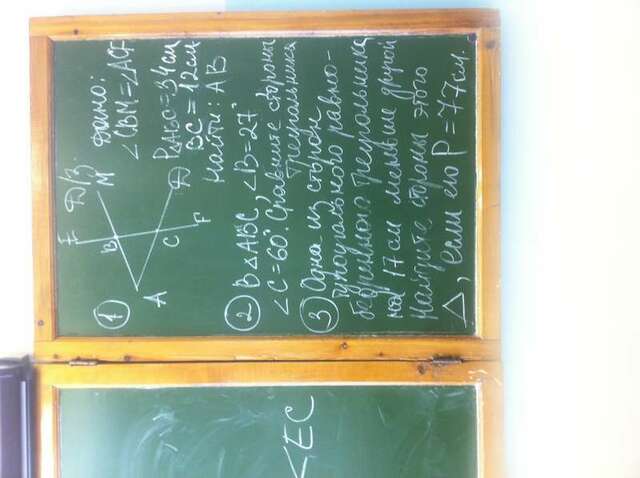 <EC
Д/З.
①
E
B
M
A
C
D
F
Дано:
∠CBM=∠ACF
P△ABC=34см
BC=12см
Найти: AB
② В △ABC, ∠B=27°,
∠C=60°. Сравните стороны
треугольника
③ Одна из сторон
тупоугольного равно-
бедренного треугольника
на 17см меньше другой
Найдите стороны этого
△, если его P=77см.